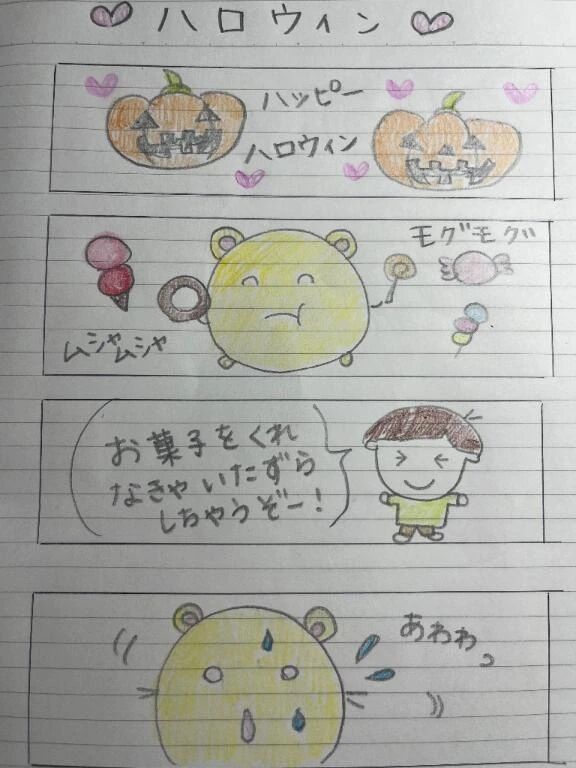 ハロウィン
ハッピー
ハロウィン
モグモグ
ムシャムシャ
お菓子をくれ
なきゃいたずら
しちゃうぞー!
あわわっ